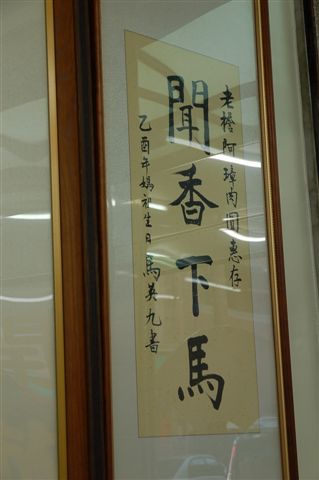 老擔阿璋肉圓惠存
聞香下馬
乙酉年媽祖生日馬英九書